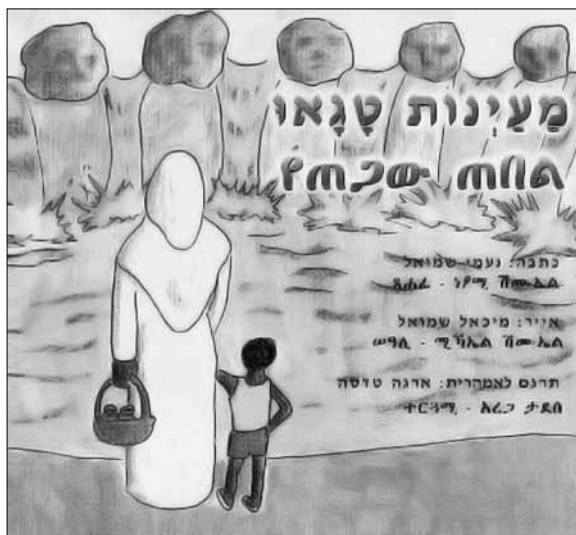 מַעַיְנוֹת טָגָאוּ
የጠጋው ጠበል
כתבה: נעמי שמואל
ጸሐፊ - ነዖሚ ሽሙኤል
אייר: מיכאל שמואל
ሠዓሊ - ሚኻኤል ሽሙኤል
תרגם לאמהרית: ארגה טדסה
ተርጓሚ - አረጋ ታደሰ